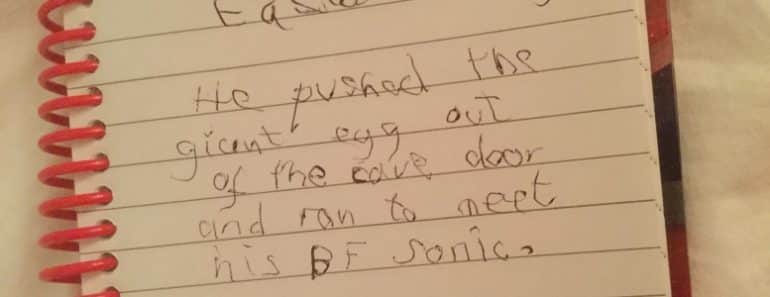 He pushed the
giant egg out
of the cave door
and ran to meet
his BF Sonic.